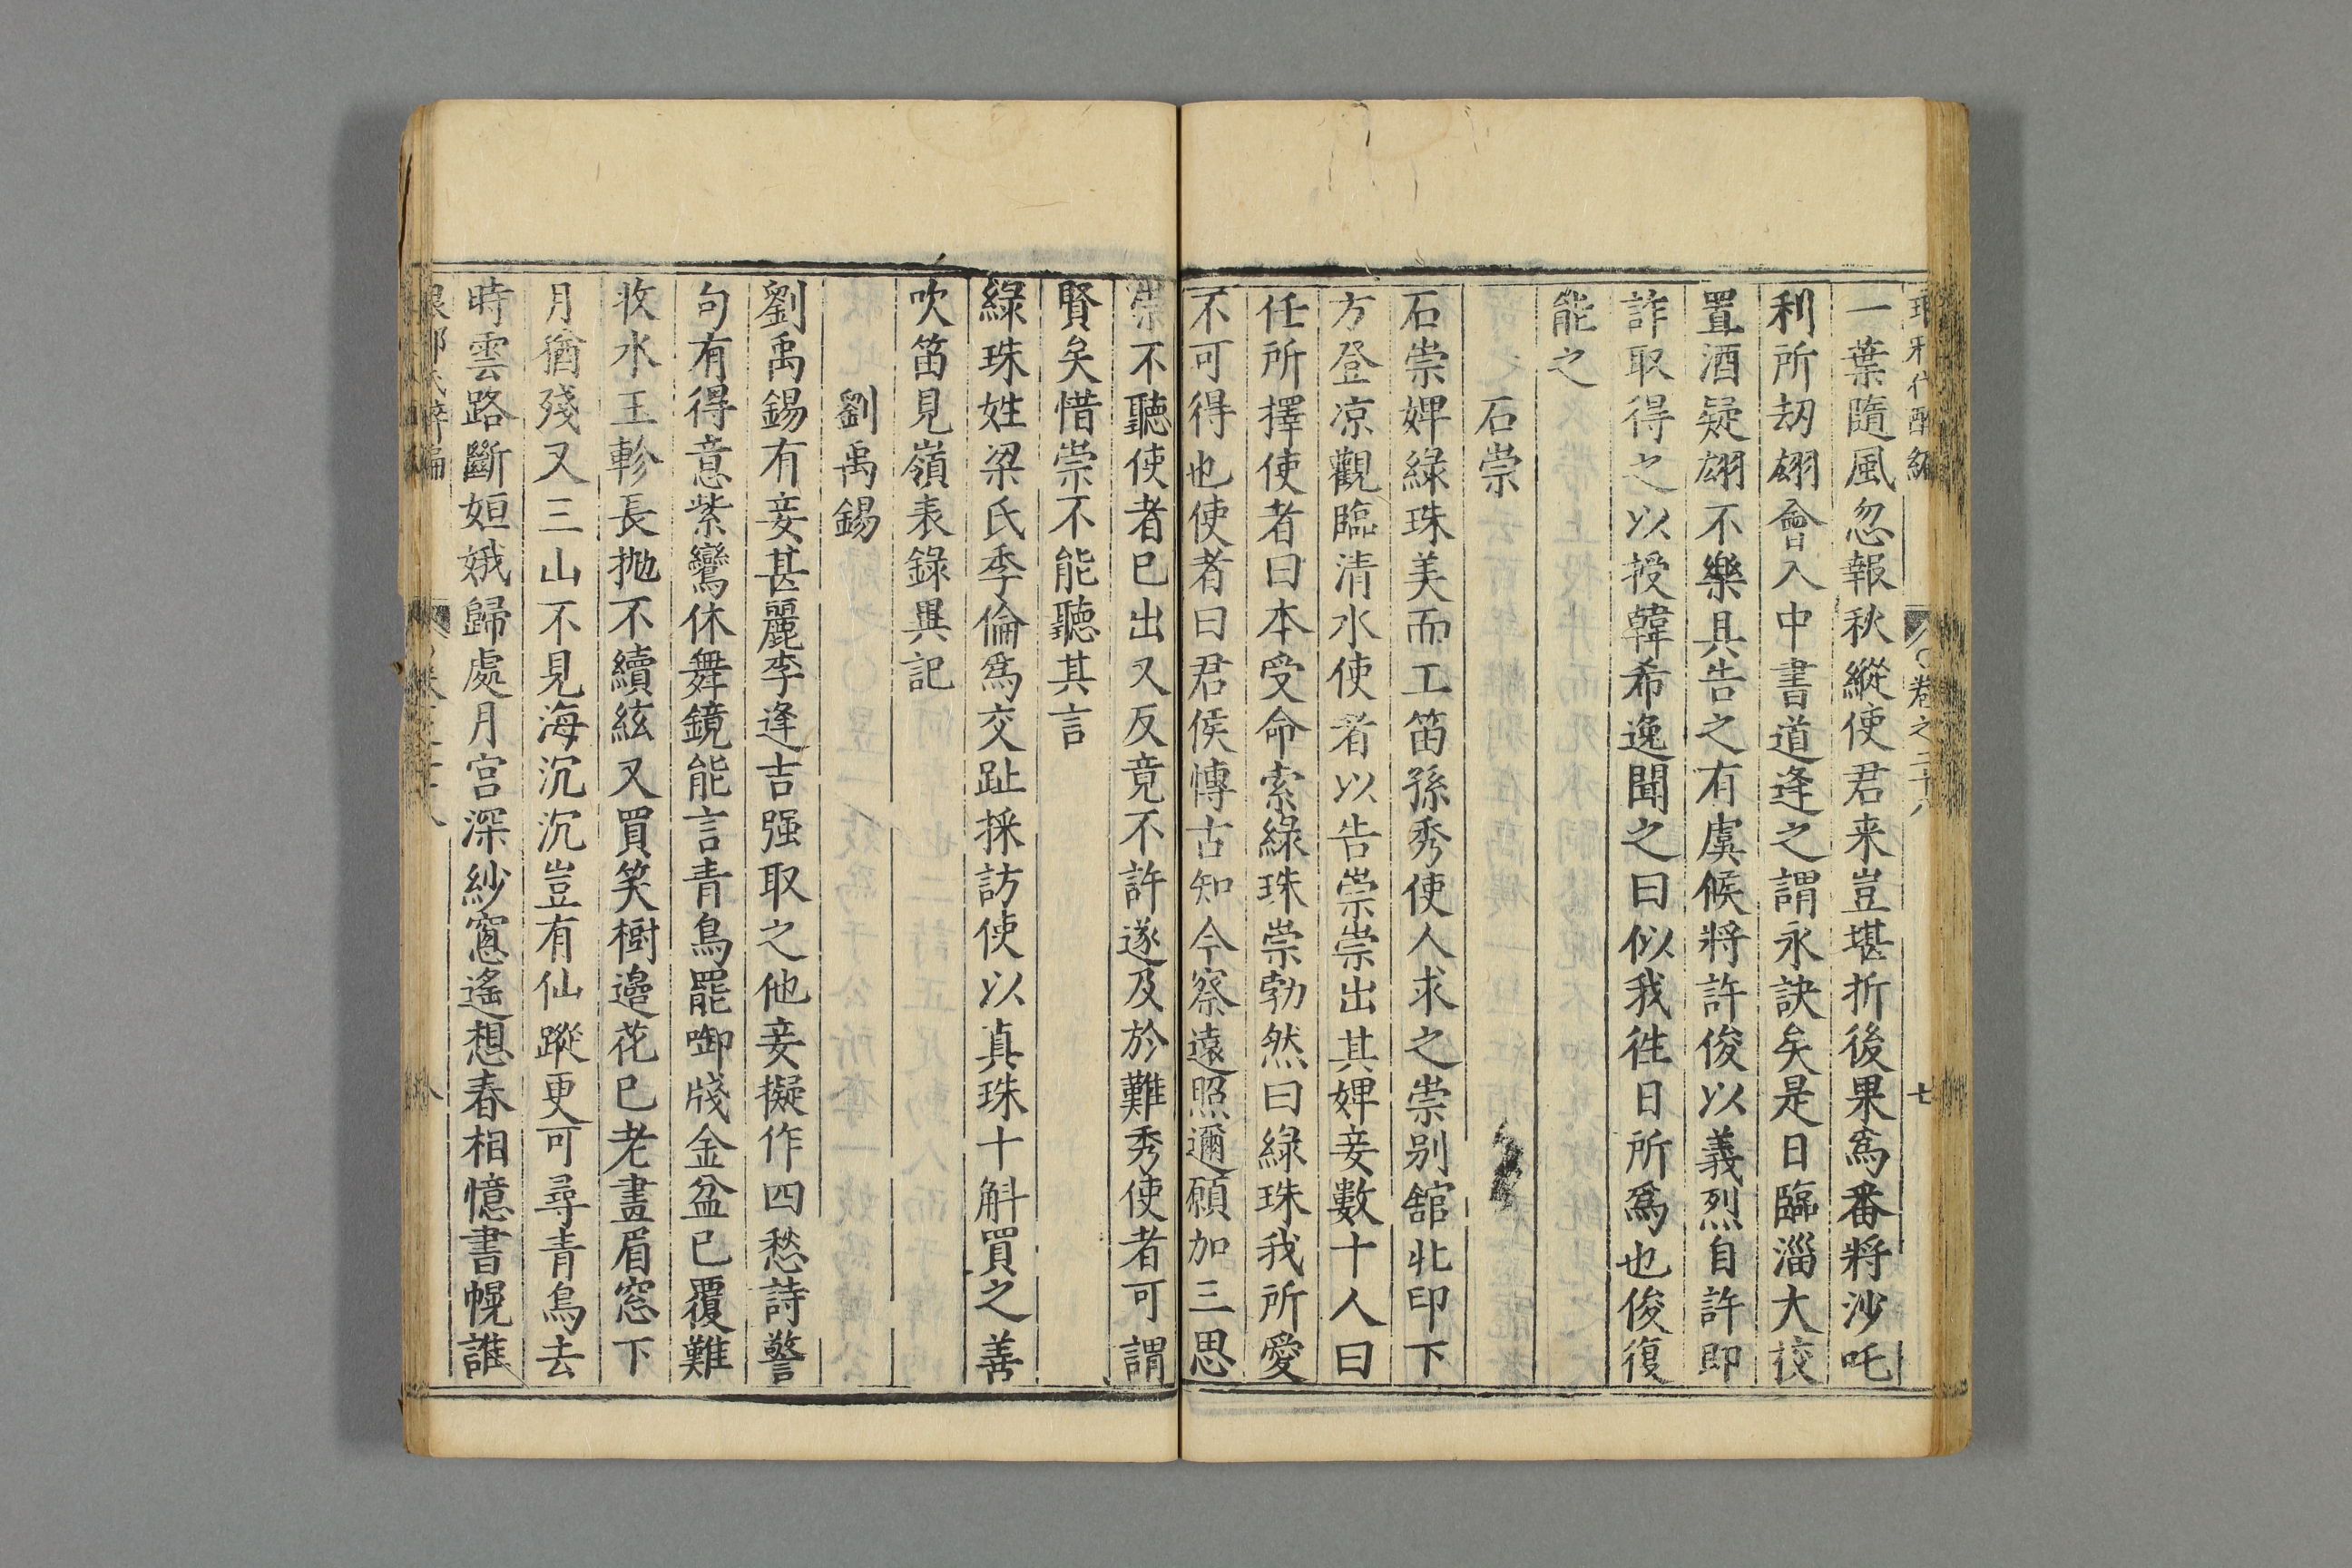 一葉隨風忽報秋縱使君来豈堪折後果爲番將沙吒
利所刼翃會入中書道逢之謂永訣矣是日臨淄大校
置酒疑翃不樂具告之有虞候將許俊以義烈自許即
詐取得之以授韓希逸聞之曰似我徃日所爲也俊復
能之
石崇
石崇婢緑珠美而工笛孫秀使人求之崇别舘北印下
方登凉觀臨清水使者以告崇崇出其婢妾數十人曰
任所擇使者曰本受命索緑珠崇勃然曰緑珠我所愛
不可得也使者曰君侯愽古知今察遠照邇願加三思
崇不聽使者已出又反竟不許遂及於難秀使者可謂
賢矣惜崇不能聽其言
緑珠姓梁氏季倫爲交趾採訪使以真珠十斛買之善
吹笛見嶺表錄異記
劉禹錫
劉禹錫有妾甚麗李逢吉强取之他妾擬作四愁詩警
句有得意紫鸞休舞鏡能言青鳥罷啣牋金盆已覆難
收水玉軫長抛不續絃又買笑樹邊花已老畫眉窓下
月猶殘又三山不見海沉沉豈有仙蹤更可尋青鳥去
時雲路斷姮娥歸處月宮深紗窻遙想春相憶書幌誰
卷之二十八
七
八